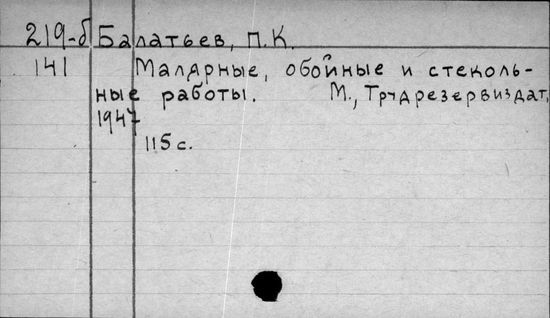 219-б Балатьев, П.К.
141 Малярные, обойные и стеколь-
ные работы. М., Трудрезервиздат,
1947
115 с.